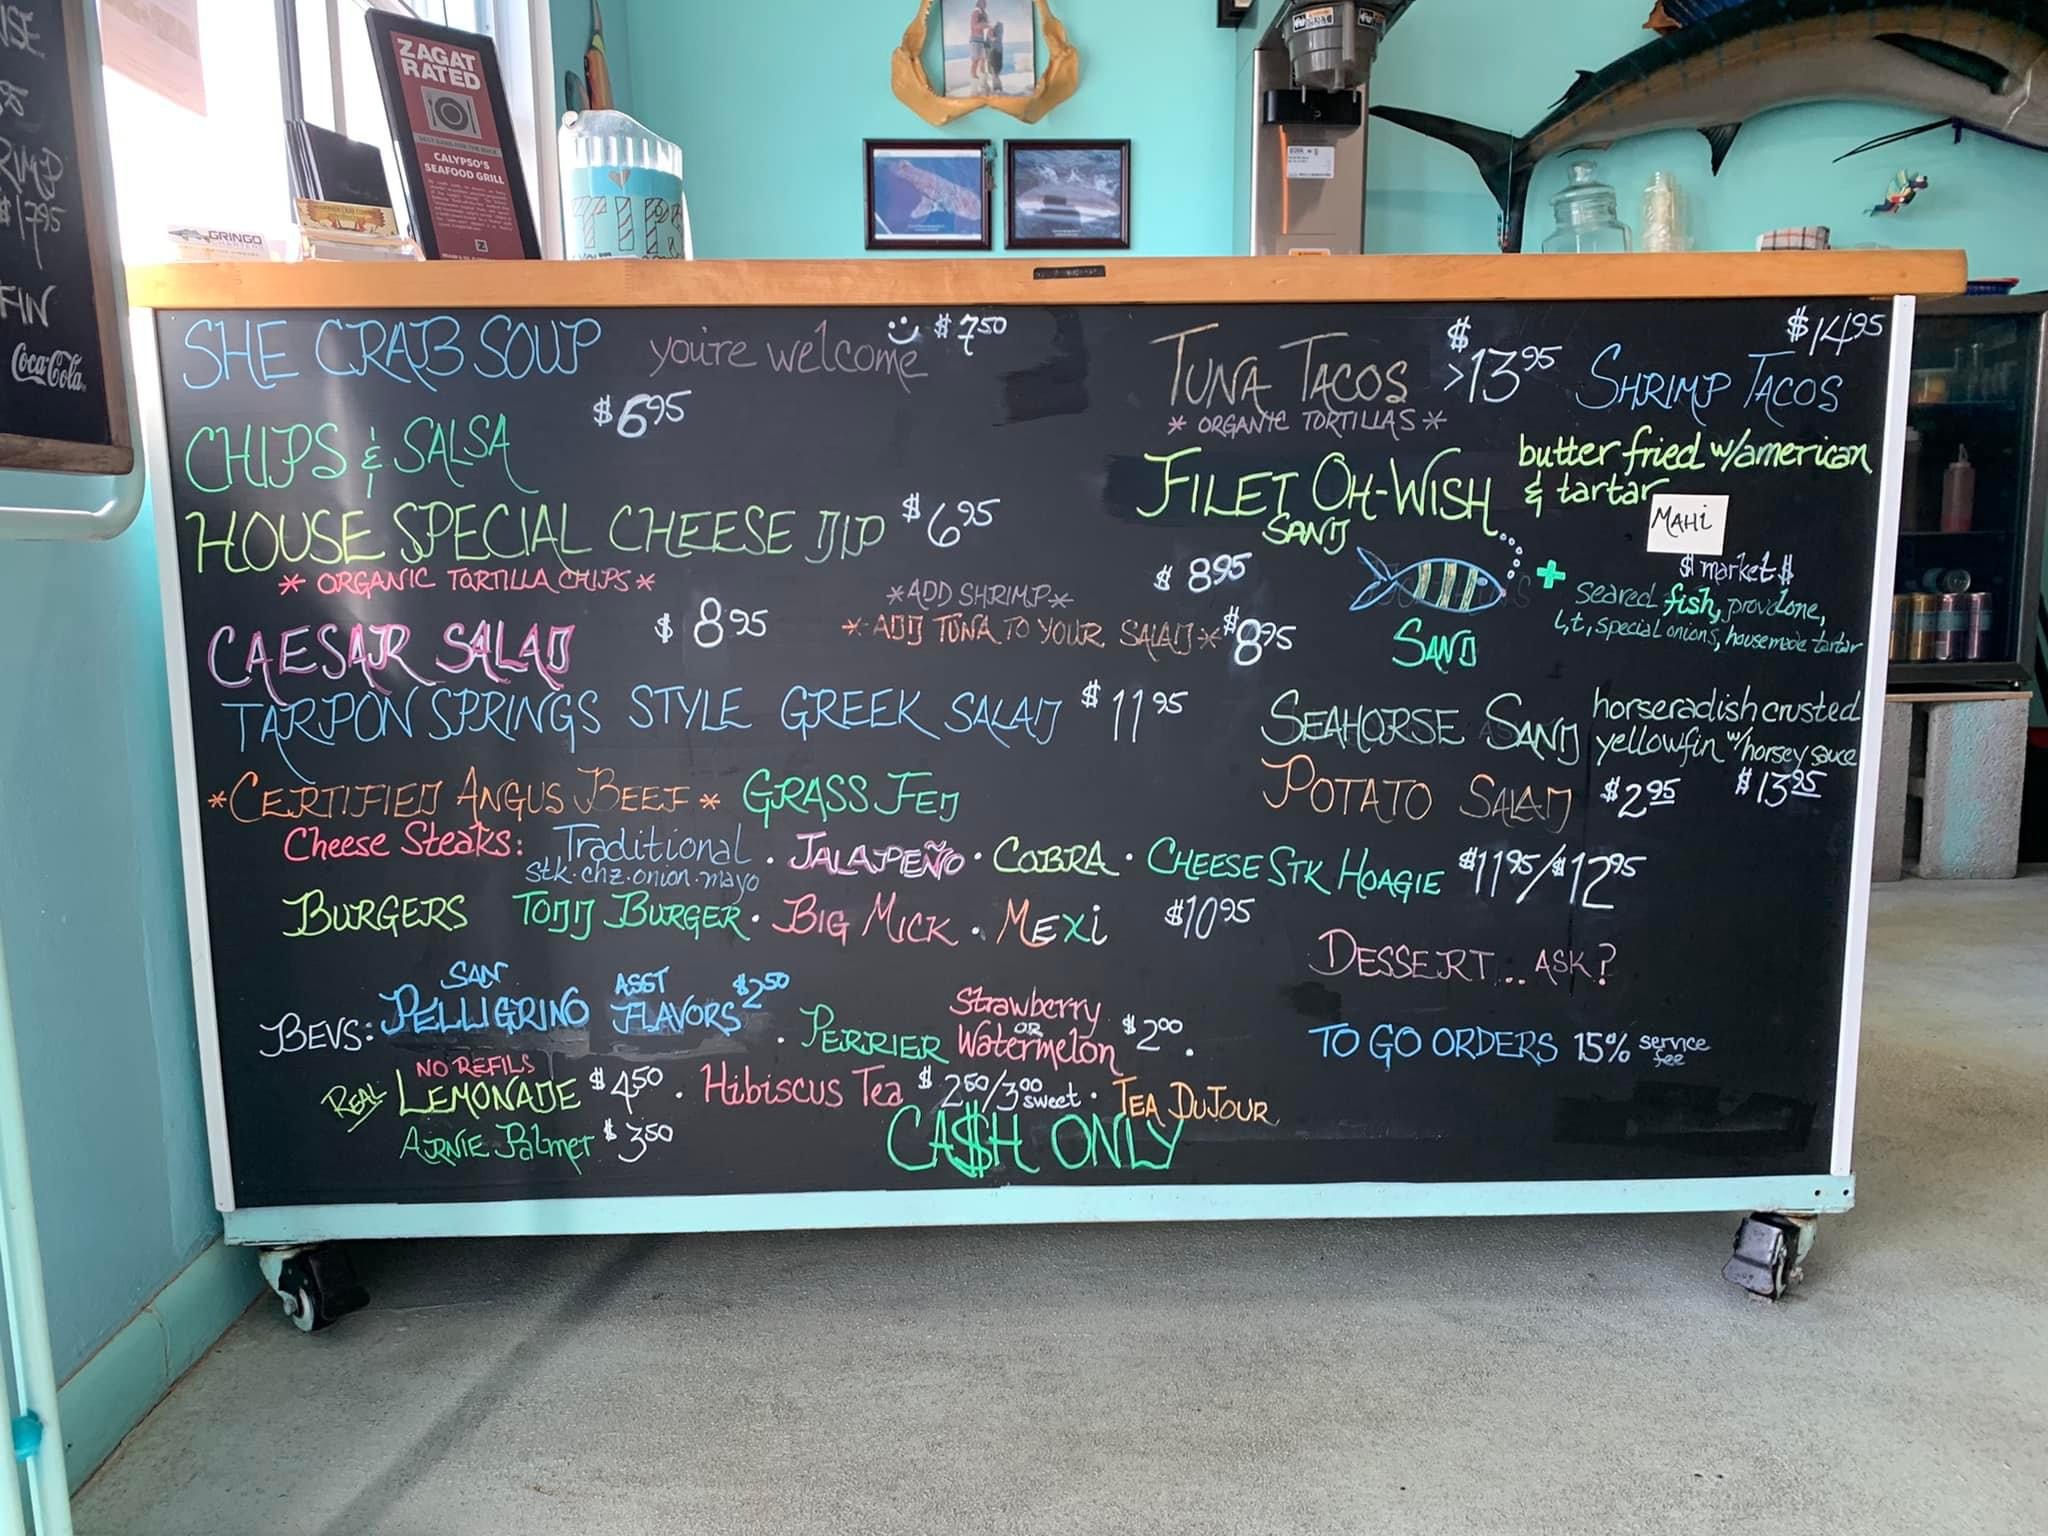 ZAGAT
RATED
CALYPSO'S
SEAFOOD GRILL
GRINGO
RIMP
$17.95
FIN
Coca-Cola
SHE CRAB SOUP you're welcome $7.50
CHIPS & SALSA $6.95
HOUSE SPECIAL CHEESE DIP $6.95
* ORGANIC TORTILLA CHIPS *
CAESAR SALAD $8.95
*ADD SHRIMP* $8.95
* ADD TUNA TO YOUR SALAD * $8.95
TARPON SPRINGS STYLE GREEK SALAD $11.95
*CERTIFIED ANGUS BEEF* GRASS FED
Cheese Steaks: Traditional · JALAPEÑO · COBRA · CHEESE STK HOAGIE $11.95/$12.95
stk·chz·onion·mayo
BURGERS TODD BURGER · BIG MICK · MEXI $10.95
BEVS: SAN PELLIGRINO ASST FLAVORS $2.50 · PERRIER Strawberry OR Watermelon $2.00 ·
NO REFILS
REAL LEMONADE $4.50 · HIBISCUS TEA $2.50/3.00 sweet · TEA DUJOUR
ARNIE Palmer $3.50
CA$H ONLY
TUNA TACOS $13.95
* ORGANIC TORTILLAS *
SHRIMP TACOS $14.95
FILET OH-WISH SAND
butter fried w/american
& tartar
MAHI
$ market $
SAND
+ seared fish, provolone,
l,t, special onions, housemade tartar
SEAHORSE SAND horseradish crusted
yellowfin w/horsey sauce
$13.95
POTATO SALAD $2.95
DESSERT... ASK?
TO GO ORDERS 15% service fee